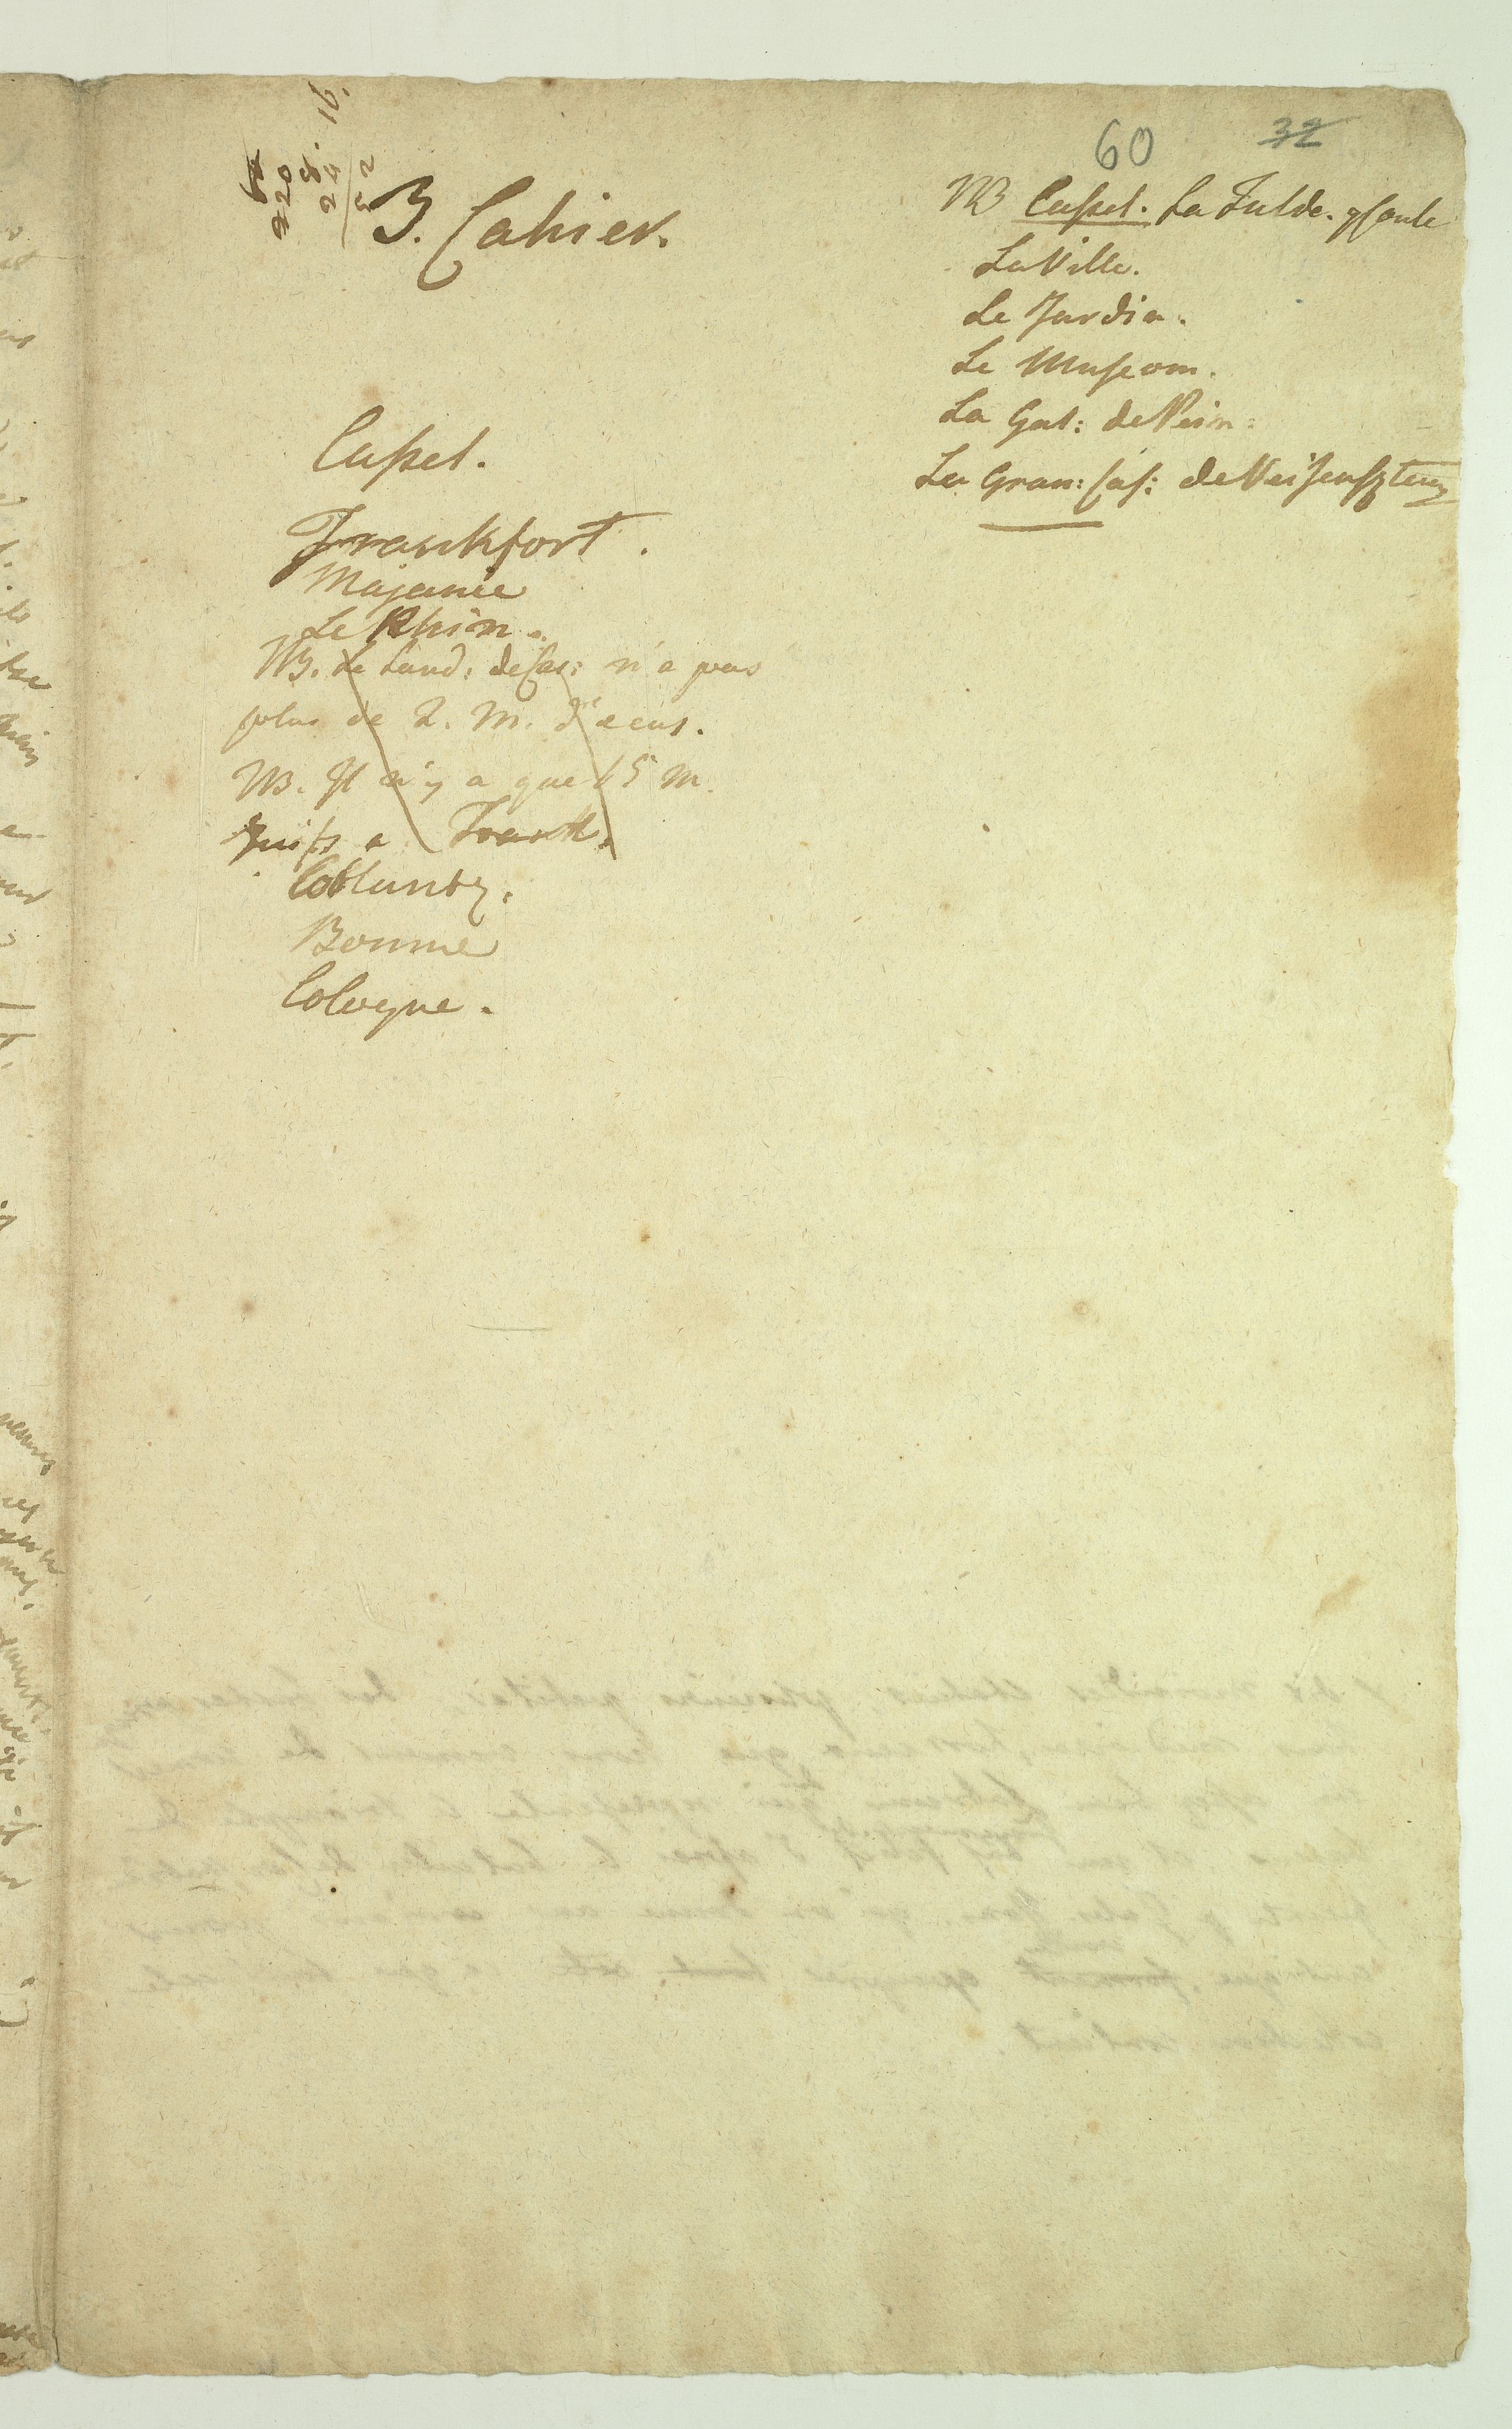 60 32
3. Cahier.
NB Cassel. La Fulde. y coule
La Ville.
Le Jardin.
Le Museom.
La Gal: de Pein:
La Gran: Cas: de
Cassel.
Frankfort.
Majance
Le Rhin.
NB. Le Land: de Cas: n'a pas
plus de 2. M. d'ecus.
NB. Il n'y a que 15 M.
Juifs a Frank.
Coblantz.
Bonne
Cologne.